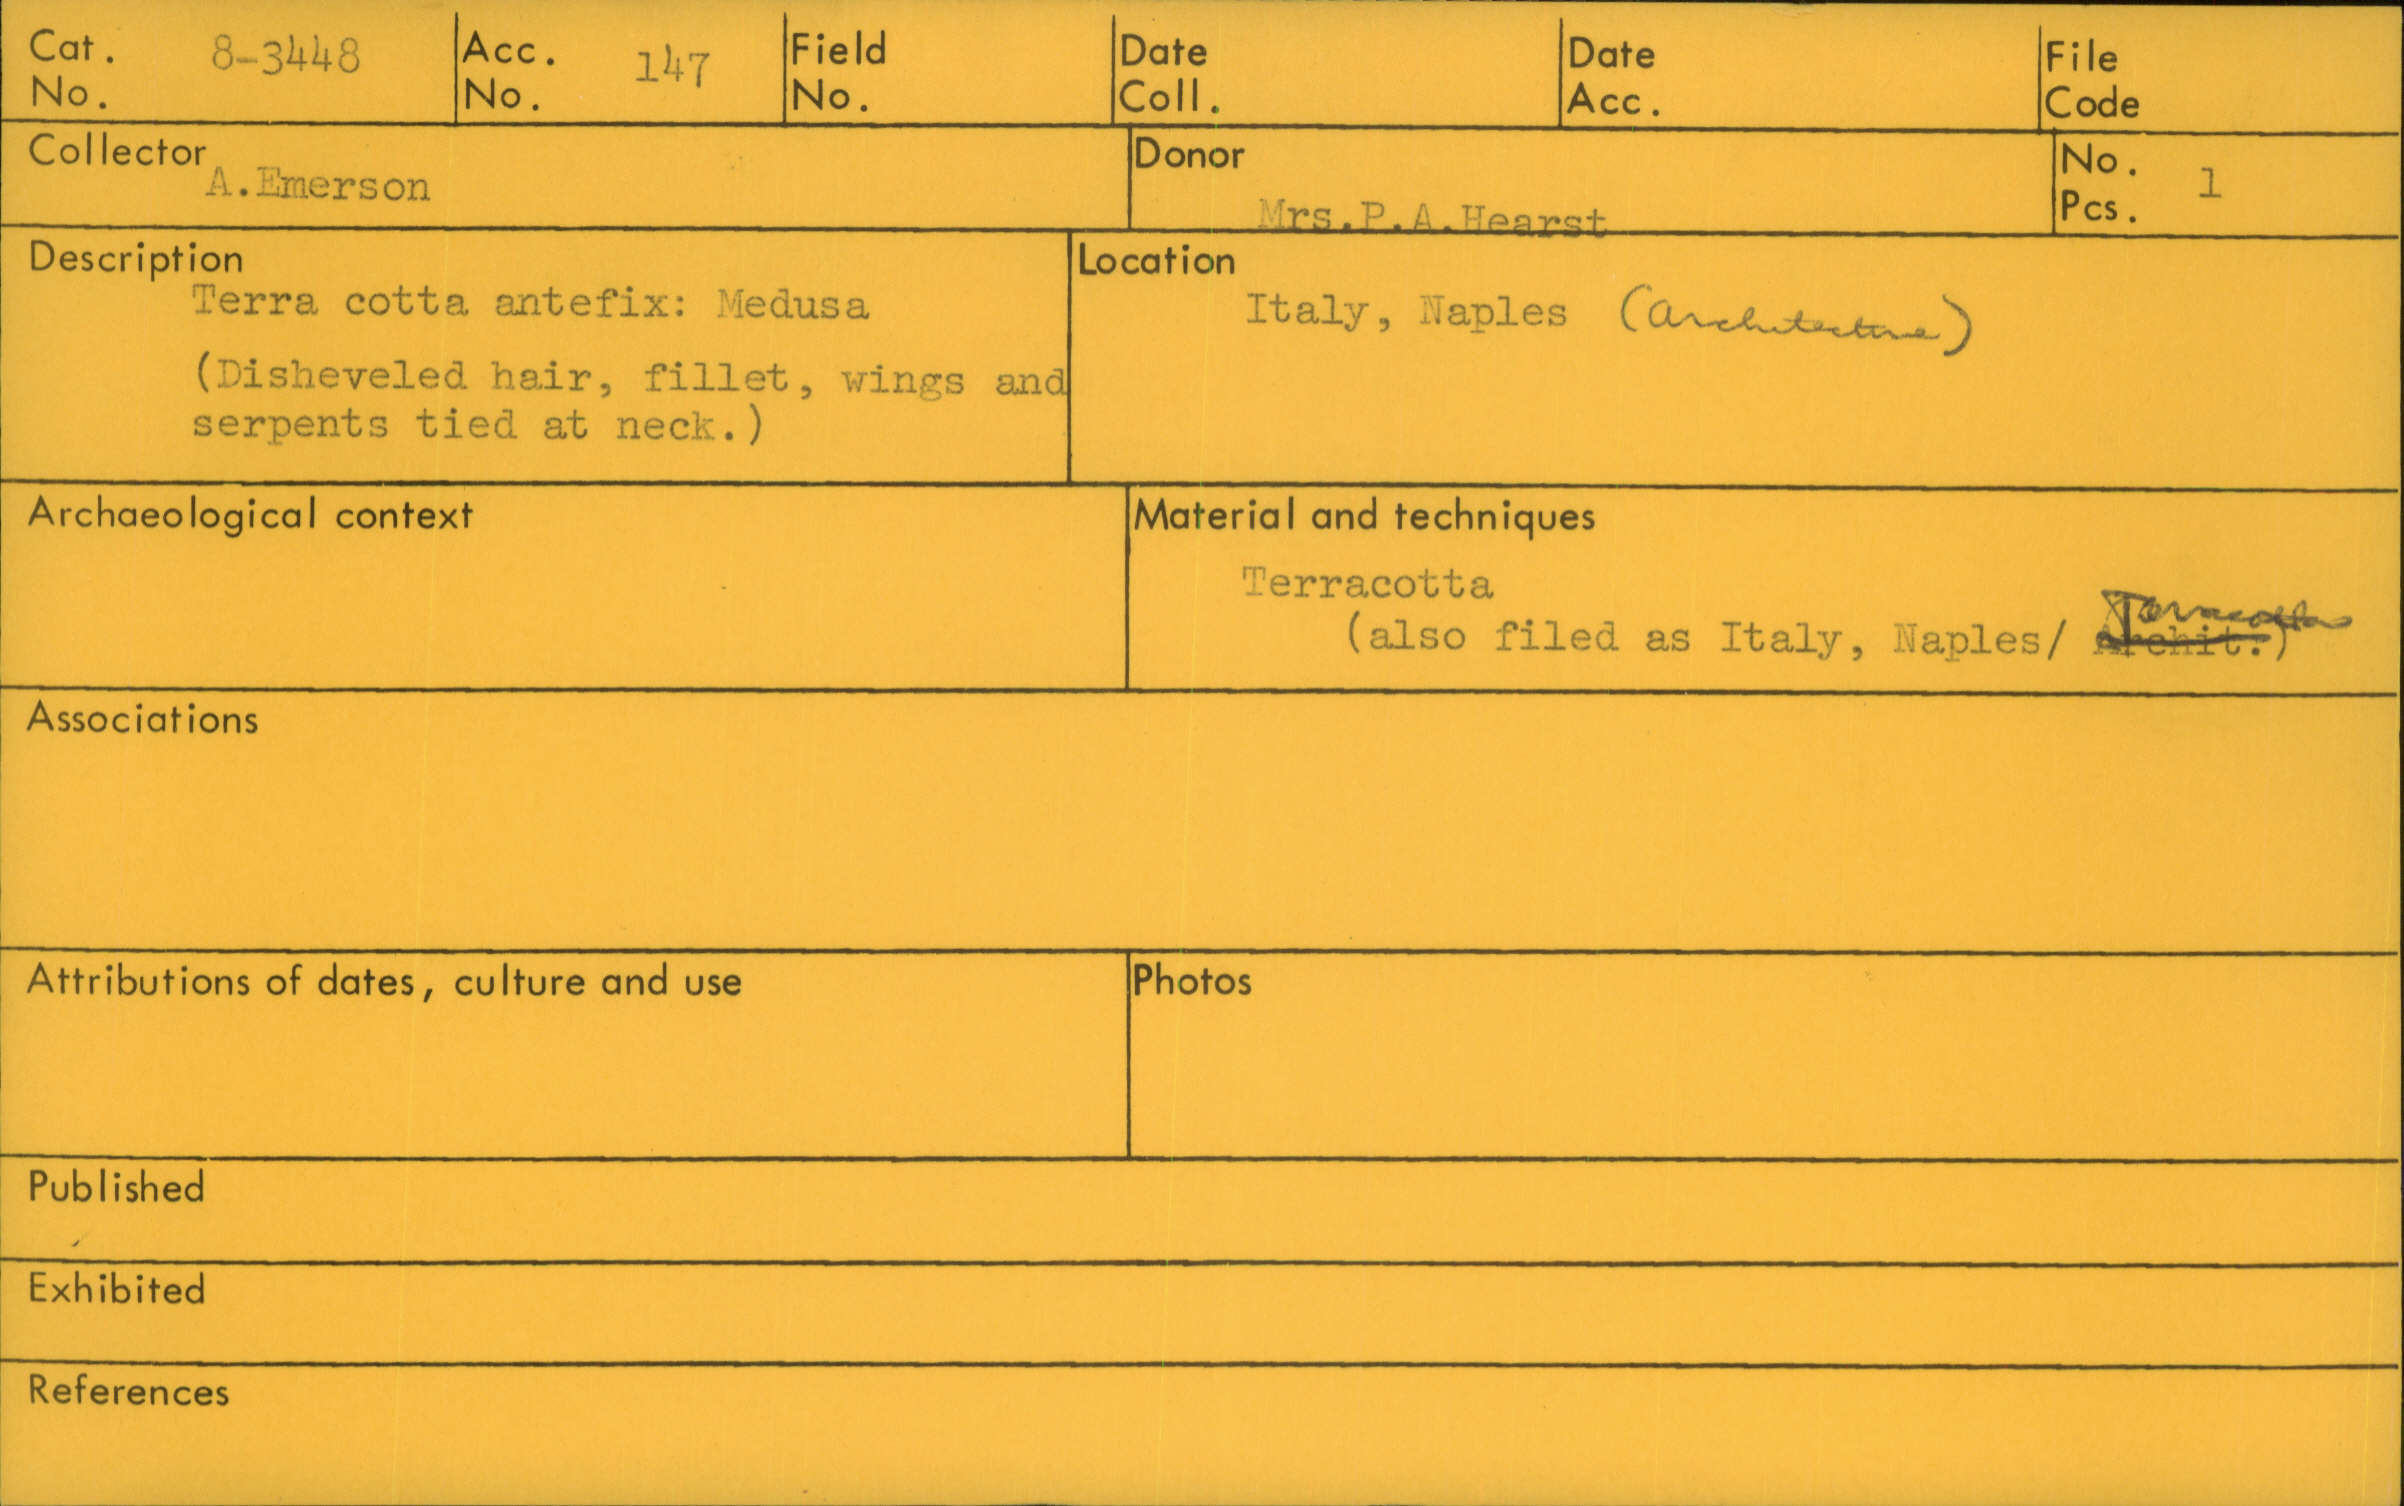 Cat. No. 8-3448
Acc. No. 147
Field No.
Date Coll.
Date Acc.
File Code
Collector
A.Emerson
Donor
Mrs.P.A.Hearst
No. Pcs. 1
Description
Terra cotta antefix: Medusa
(Disheveled hair, fillet, wings and
serpents tied at neck.)
Location
Italy, Naples (Architecture)
Archaeological context
Material and techniques
Terracotta
(also filed as Italy, Naples/ Archit.) Terracottas
Associations
Attributions of dates, culture and use
Photos
Published
Exhibited
References